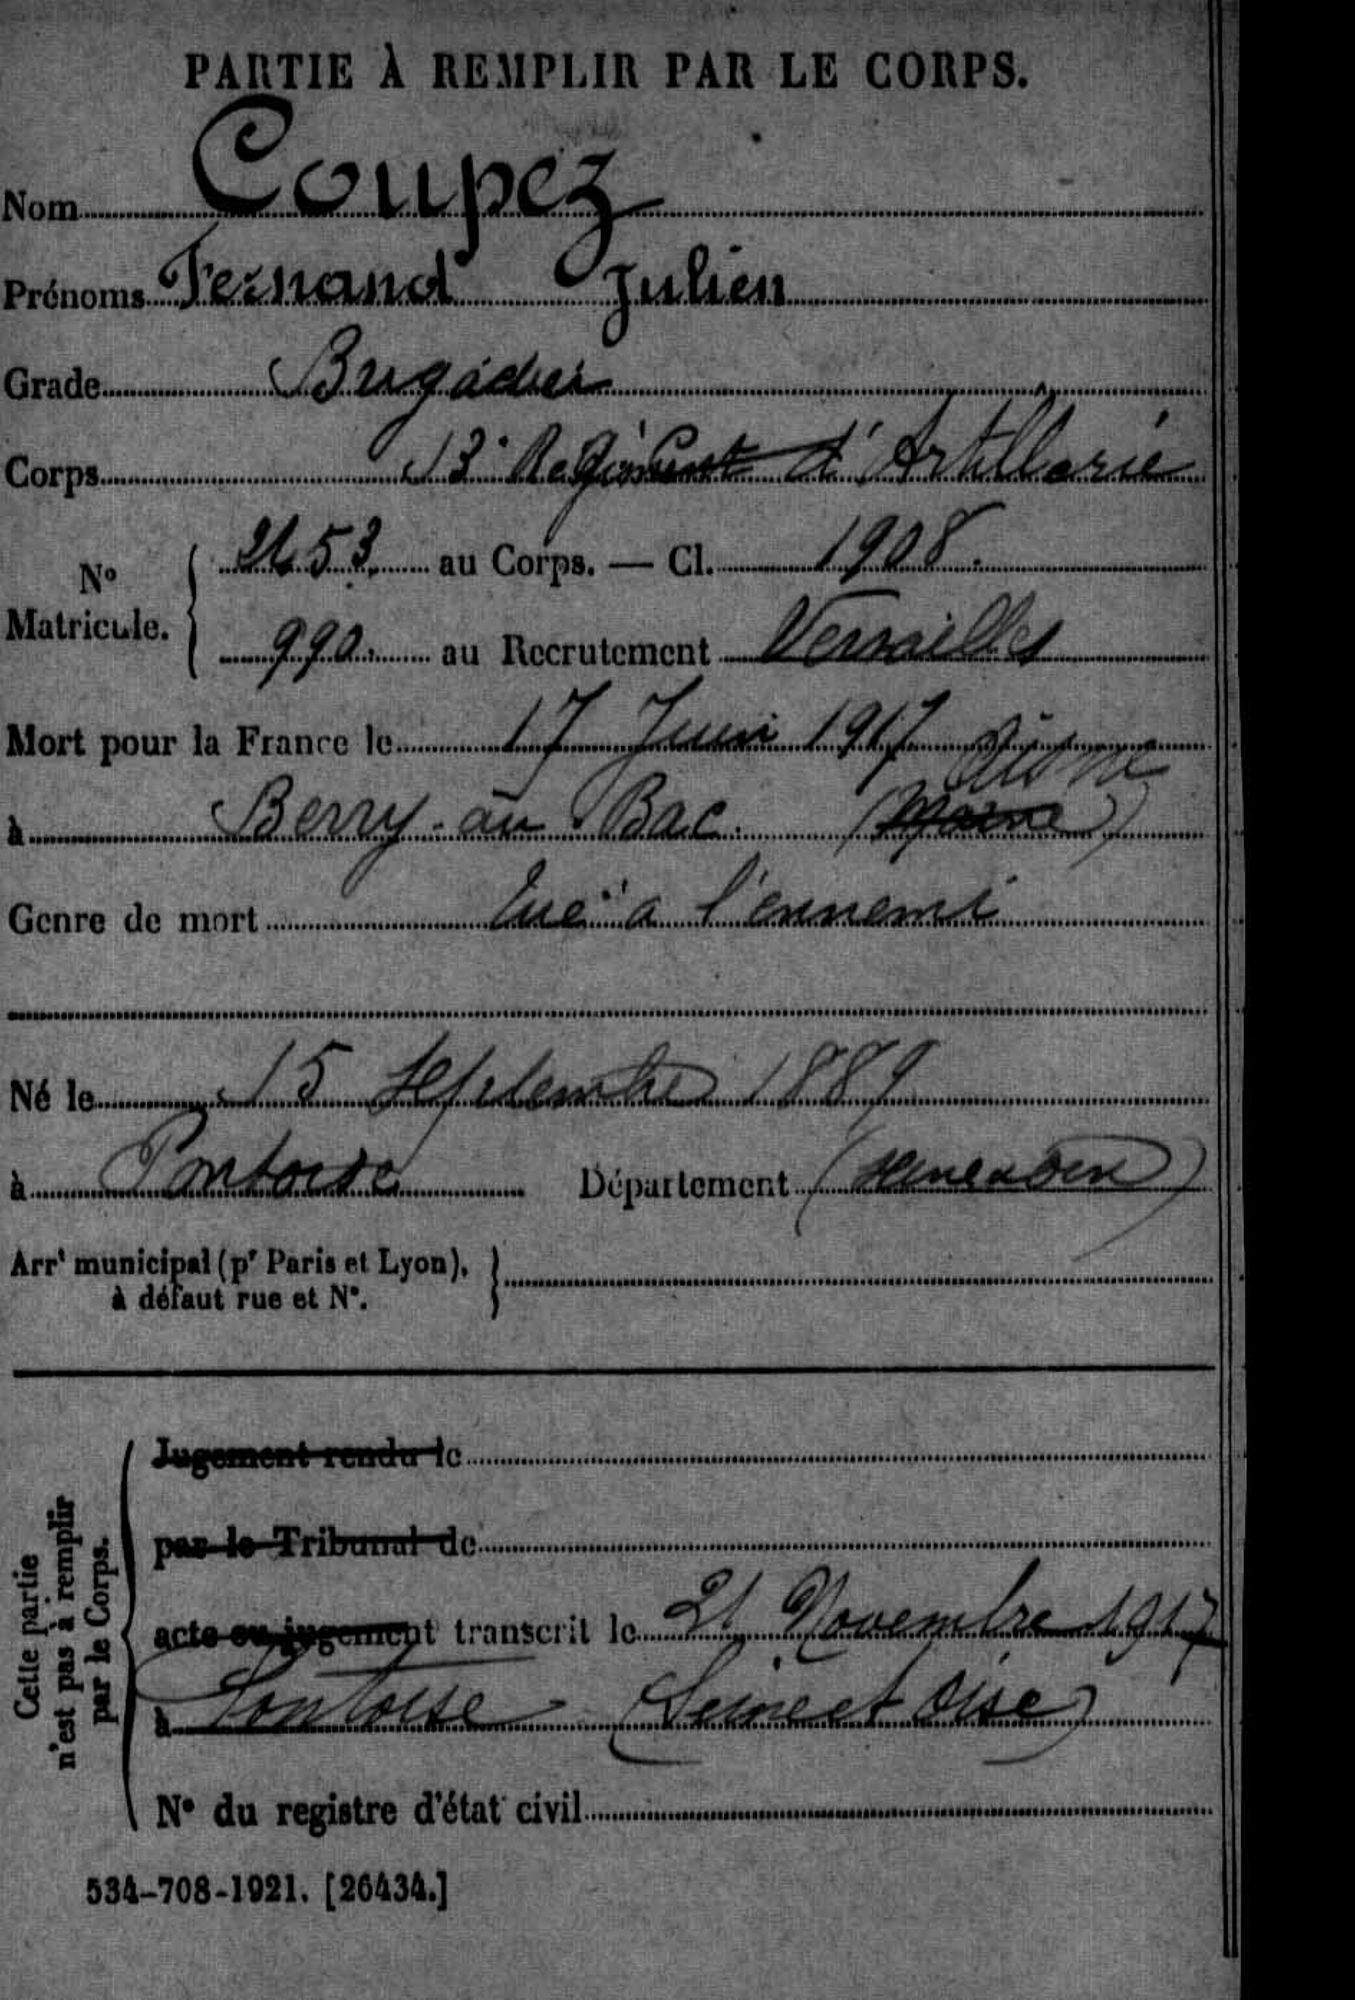 PARTIE À REMPLIR PAR LE CORPS.
Nom Coupez
Prénoms Fernand Julien
Grade Brigadier
Corps 13e Régiment d'Artillerie
No Matricule. { 2453. au Corps. — Cl. 1908.
990. au Recrutement Versailles
Mort pour la France le 17 Juin 1917 Aisne
à Berry-au-Bac. (Marne)
Genre de mort Tué à l'ennemi
Né le 15 Septembre 1889
à Pontoise Département (Seine & Oise)
Arrt municipal (pr Paris et Lyon),
à défaut rue et N°.
Cette partie
n'est pas à remplir
par le Corps.
Jugement rendu le
par le Tribunal de
acte ou jugement transcrit le 21 Novembre 1917
à Pontoise (Seine et Oise)
N° du registre d'état civil
534-708-1921. [26434.]